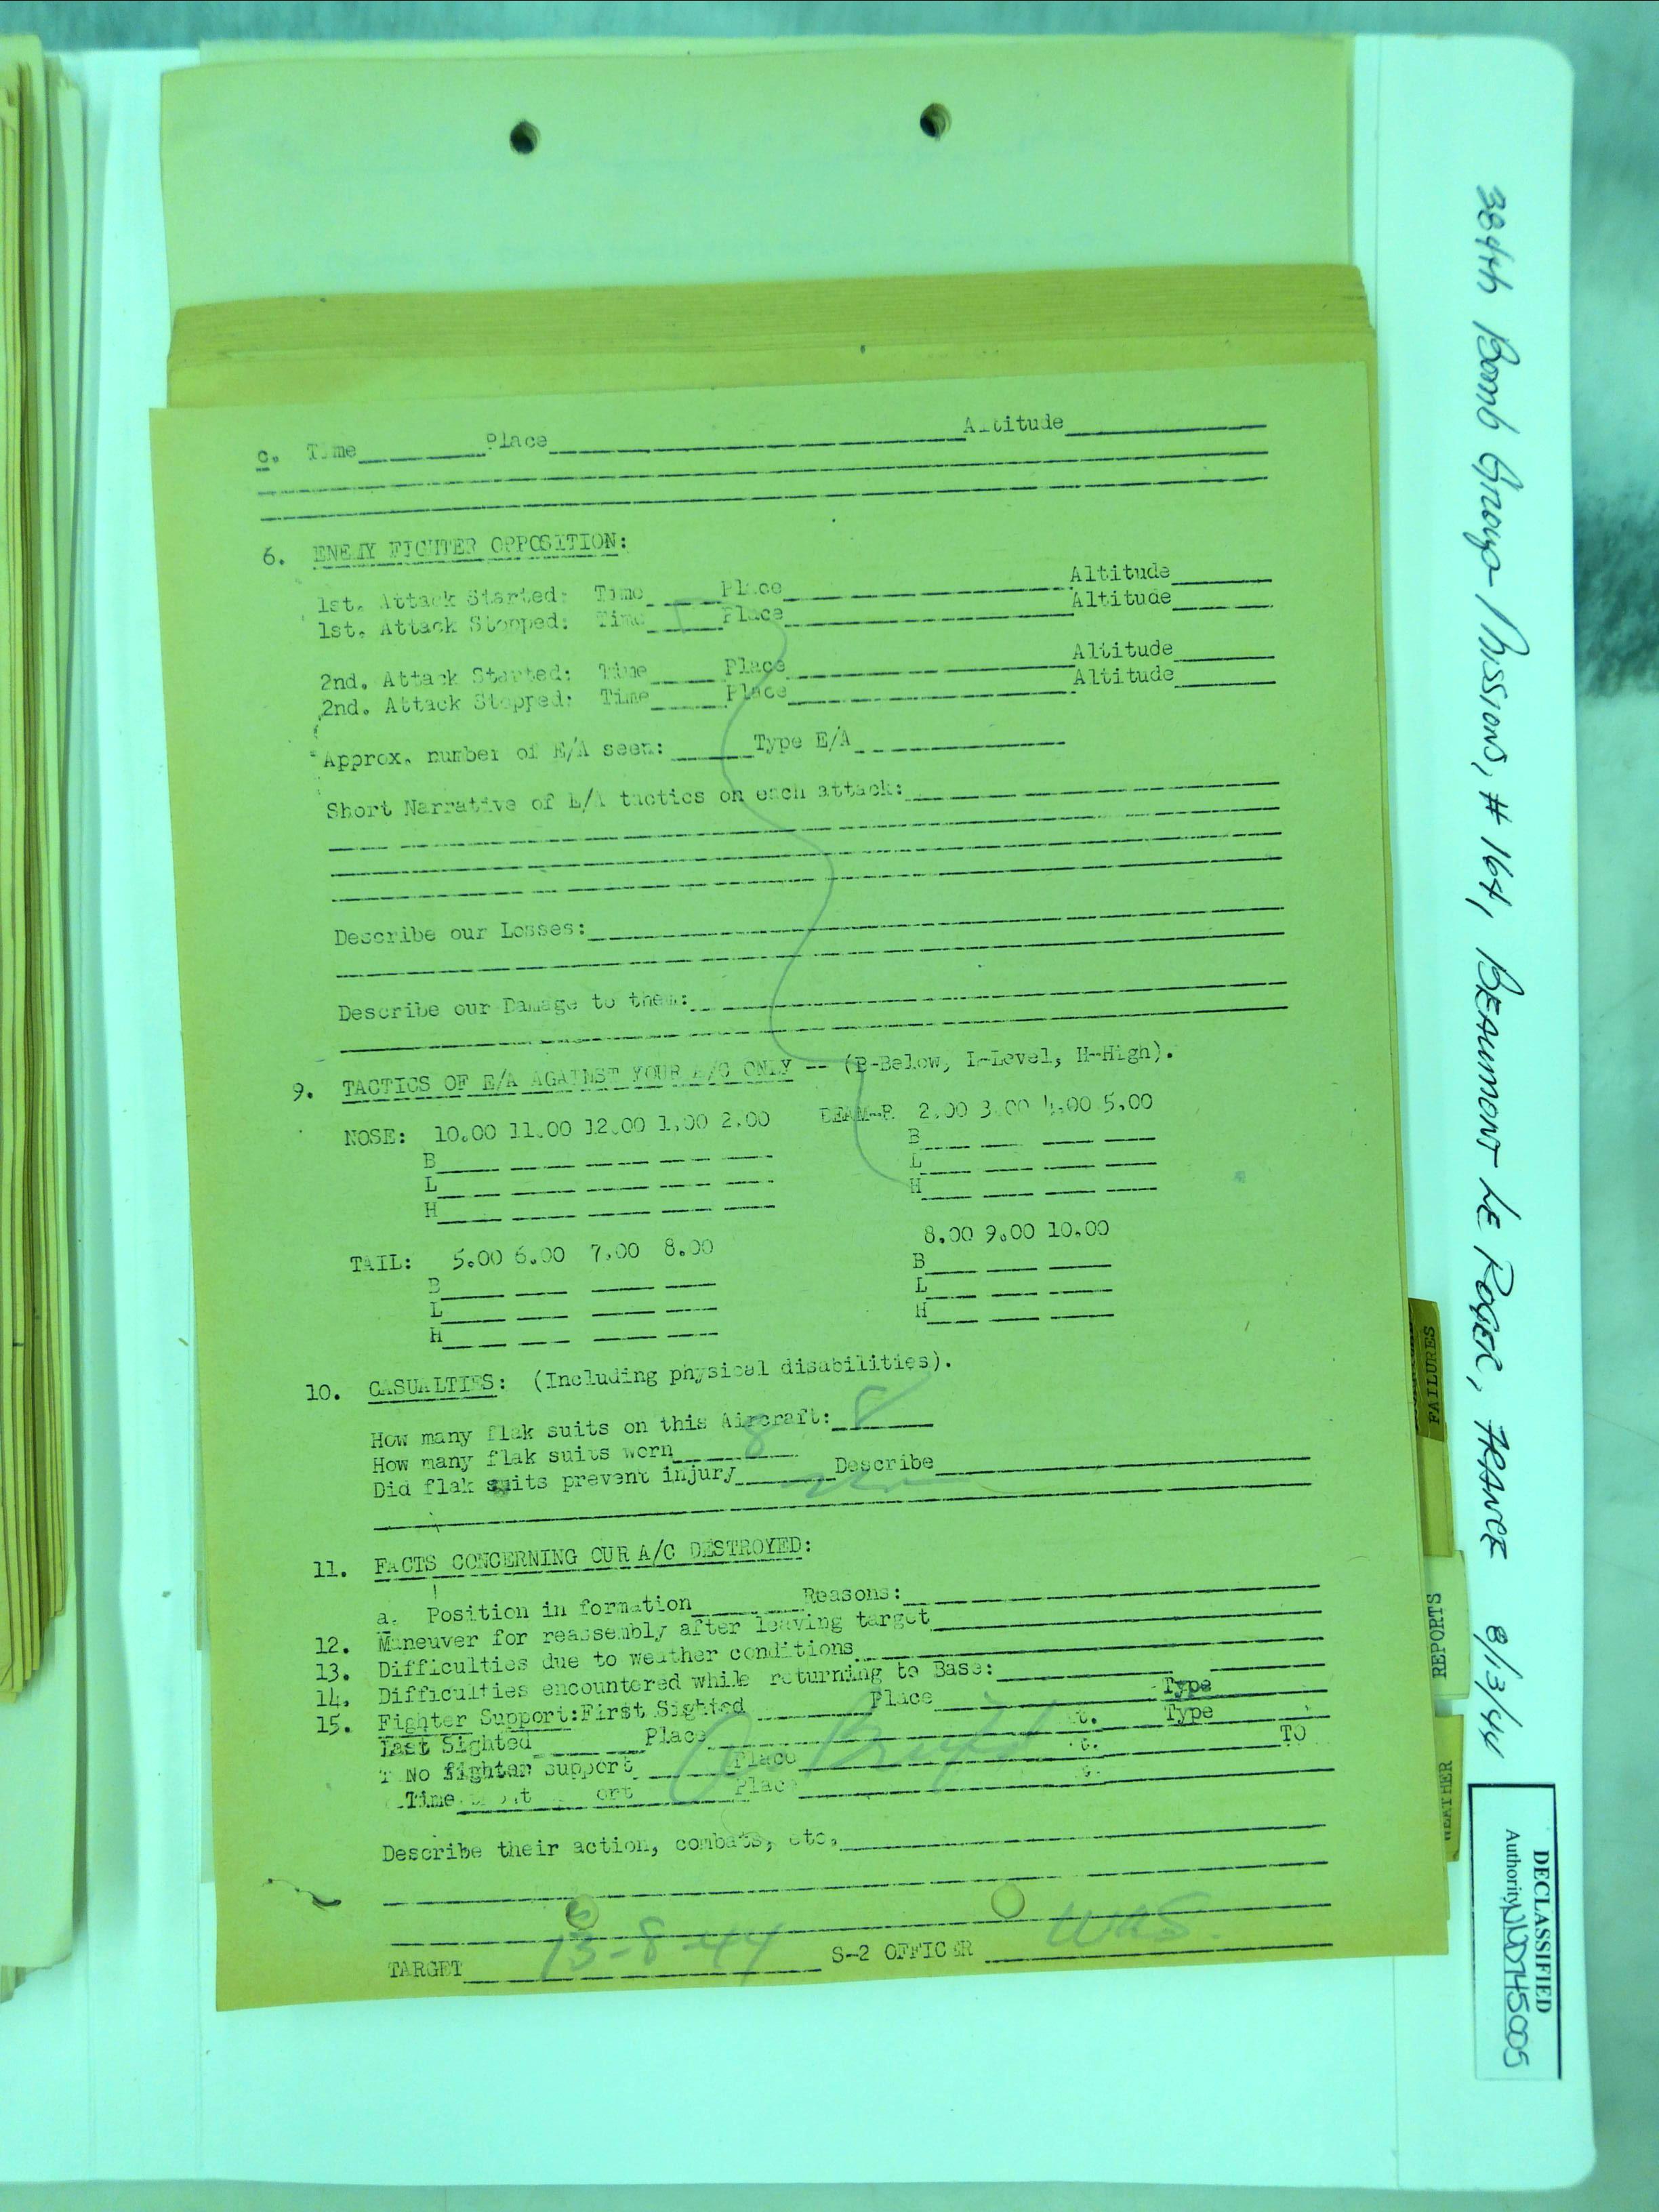 c. Time Place Altitude
6. ENEMY FIGHTER OPPOSITION:
1st. Attack Started: Time Place Altitude
1st. Attack Stopped: Time Place Altitude
2nd. Attack Started: Time Place Altitude
2nd. Attack Stopped: Time Place Altitude
Approx. number of E/A seen: Type E/A
Short Narrative of E/A tactics on each attack:
Describe our Losses:
Describe our Damage to them:
9. TACTICS OF E/A AGAINST YOUR A/C ONLY -- (B-Below, L-Level, H-High).
NOSE: 10.00 11.00 12.00 1.00 2.00 BEAM-R 2.00 3.00 4.00 5.00
B B
L L
H H
TAIL: 5.00 6.00 7.00 8.00 8.00 9.00 10.00
B B
L L
H H
10. CASUALTIES: (Including physical disabilities).
How many flak suits on this Aircraft: 8
How many flak suits worn 8
Did flak suits prevent injury Describe
11. FACTS CONCERNING OUR A/C DESTROYED:
a. Position in formation Reasons:
12. Maneuver for reassembly after leaving target
13. Difficulties due to weather conditions
14. Difficulties encountered while returning to Base:
15. Fighter Support: First Sighted Place Type
Last Sighted Place t. Type
No fighter support Place t. TO
Time ort Place t.
Describe their action, combats, etc.
TARGET 13-8-44 S-2 OFFICER WAS.
384th Bomb Group-Missions, # 164, BEAUMONT LE ROGER, FRANCE 8/13/44
FAILURES
REPORTS
WEATHER
DECLASSIFIED
Authority NND745005